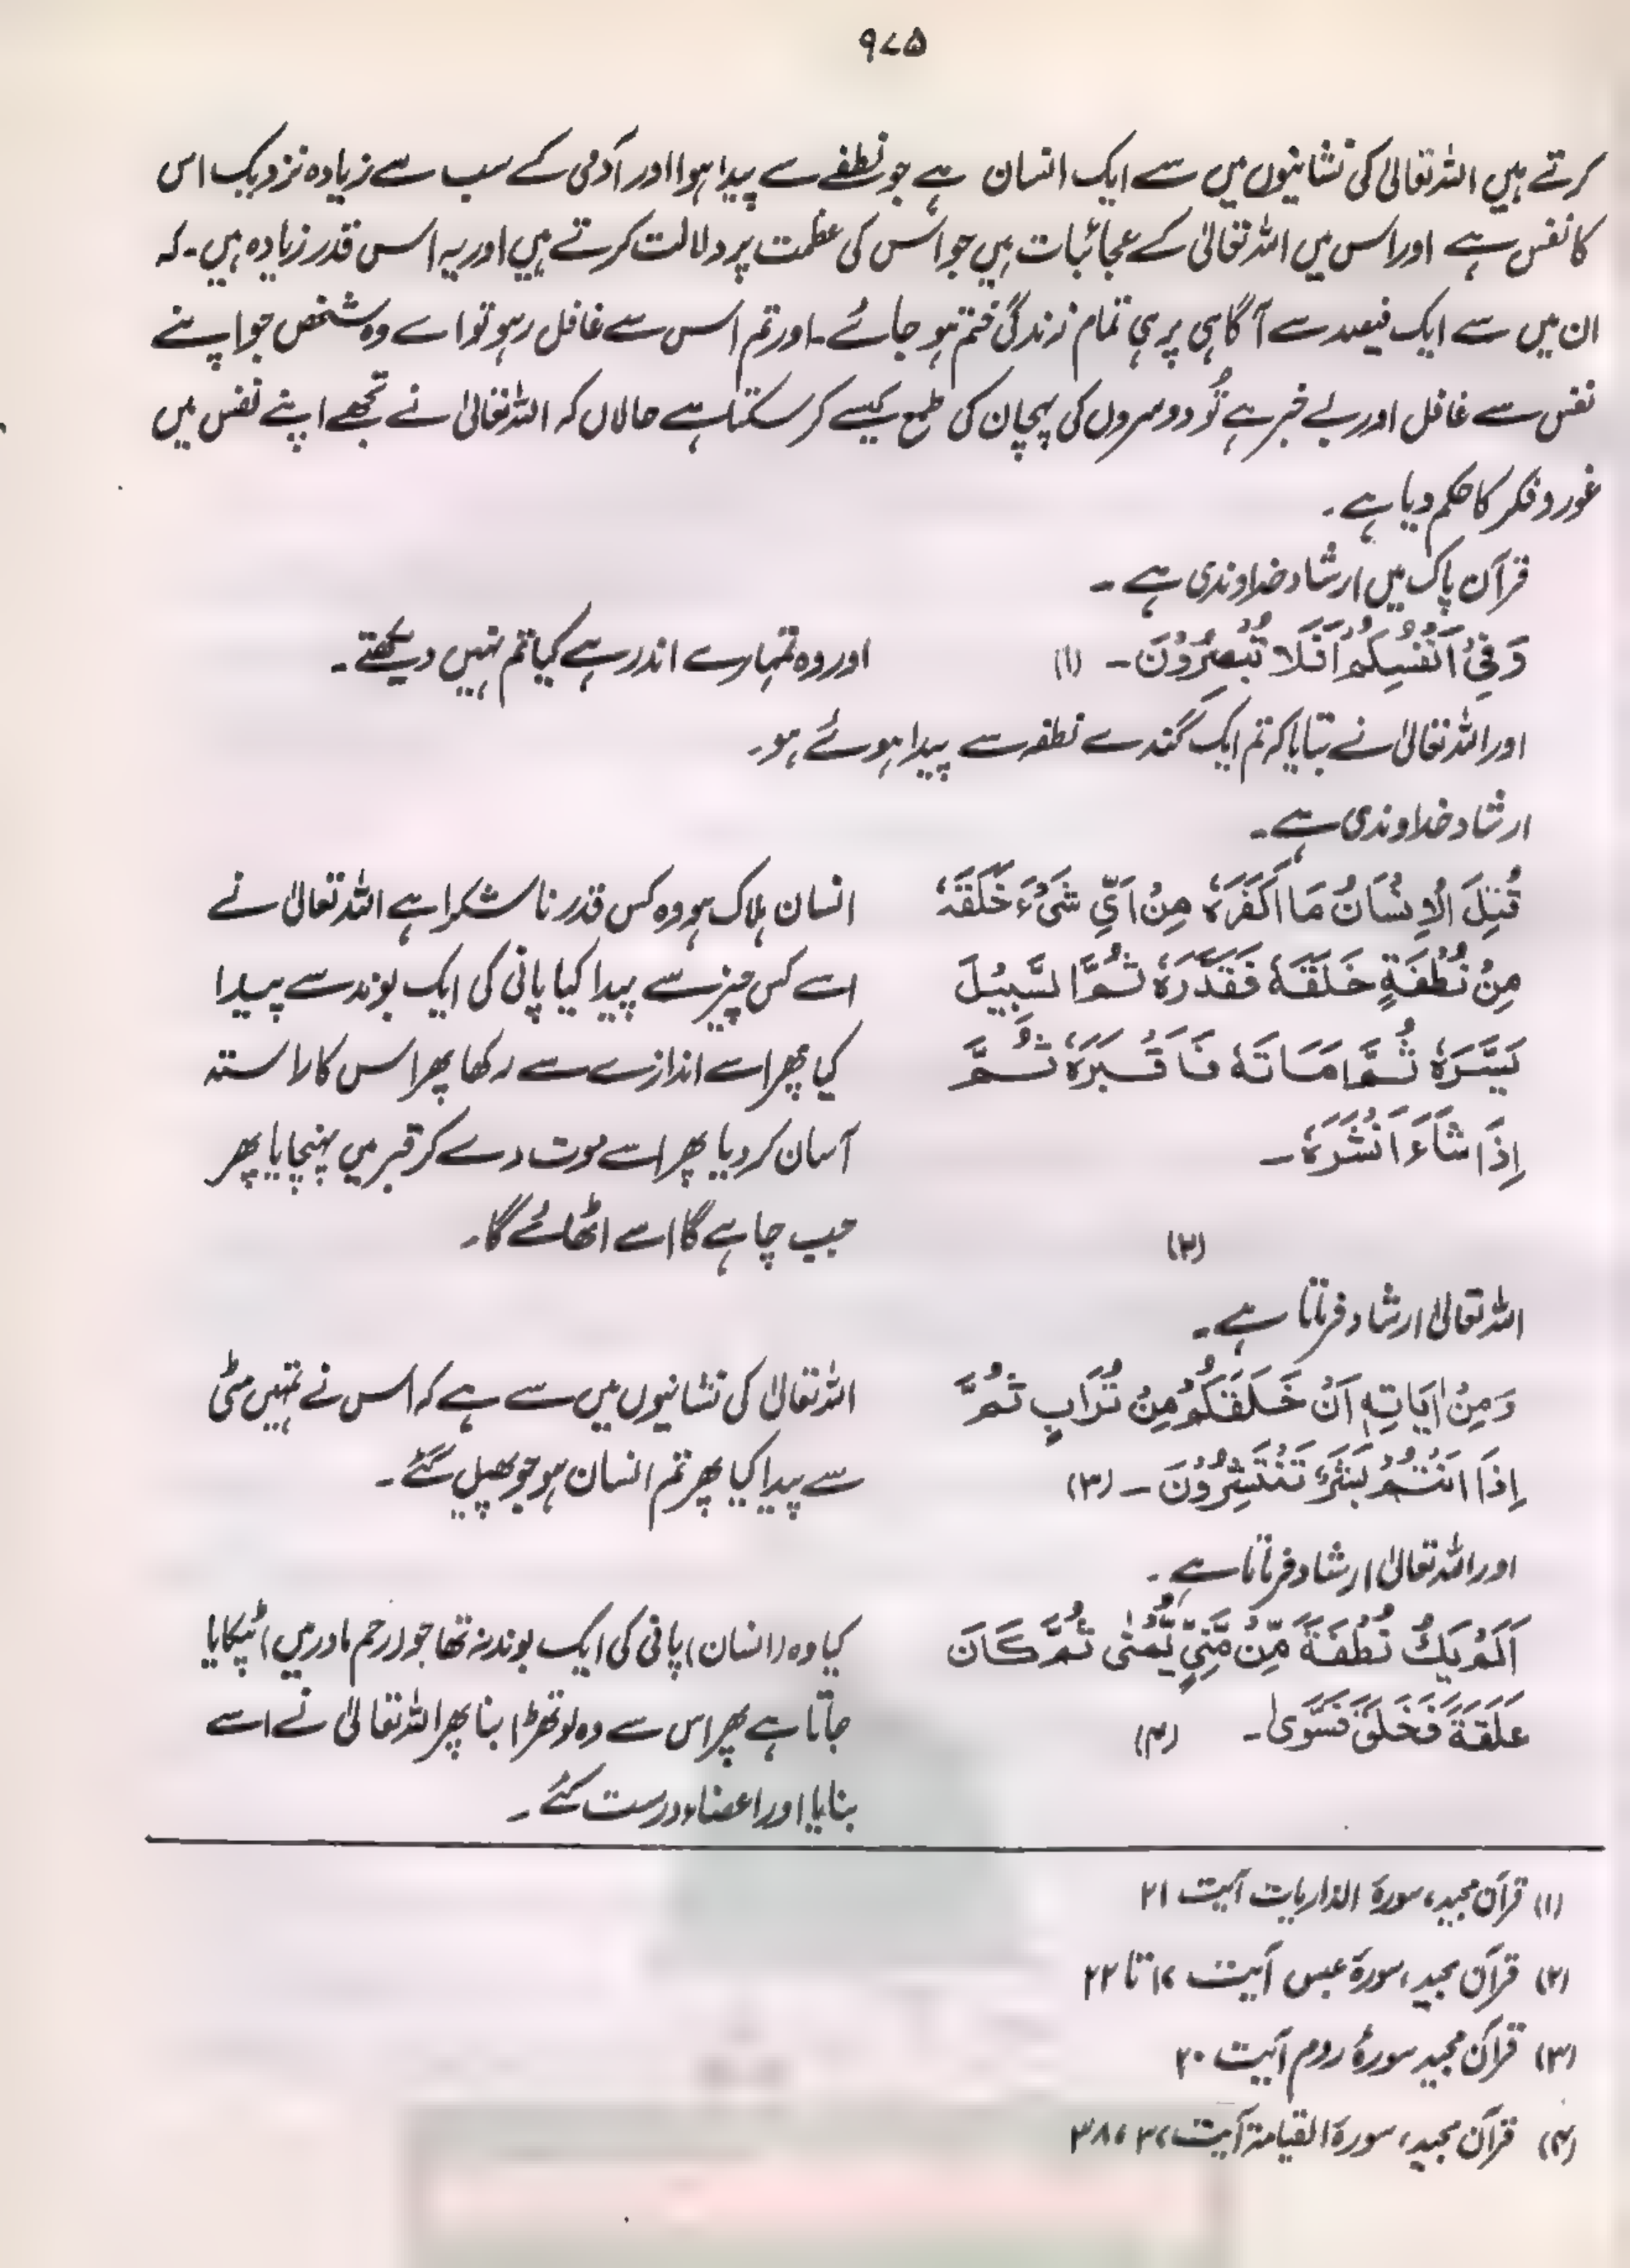 ۹۷۵
کرتے ہیں اللہ تعالیٰ کی نشانیوں میں سے ایک انسان ہے جو نطفے سے پیدا ہوا اور آدمی کے سب سے زیادہ نزدیک اس
کا نفس ہے اور اس میں اللہ تعالیٰ کے عجائبات ہیں جو اُس کی عظمت پر دلالت کرتے ہیں اور یہ اس قدر زیادہ ہیں۔ کہ
ان میں سے ایک فیصد سے آگاہی پر ہی تمام زندگی ختم ہو جائے۔ اور تم اس سے غافل رہو تو اے وہ شخص جو اپنے
نفس سے غافل اور بے خبر ہے تُو دوسروں کی پہچان کی طمع کیسے کر سکتا ہے حالاں کہ اللہ تعالیٰ نے تجھے اپنے نفس میں
غور و فکر کا حکم دیا ہے۔
قرآن پاک میں ارشاد خداوندی ہے۔
وَفِیْ اَنْفُسِکُمْ اَفَلَا تُبْصِرُوْنَ۔ (۱) اور وہ تمہارے اندر ہے کیا تم نہیں دیکھتے۔
اور اللہ تعالیٰ نے بتایا کہ تم ایک گندے نطفہ سے پیدا ہوئے ہو۔
ارشاد خداوندی ہے۔
قُتِلَ الْاِنْسَانُ مَا اَکْفَرَہٗ مِنْ اَیِّ شَیْءٍ خَلَقَہٗ انسان ہلاک ہو وہ کس قدر ناشکرا ہے اللہ تعالیٰ نے
مِنْ نُطْفَۃٍ خَلَقَہٗ فَقَدَّرَہٗ ثُمَّ السَّبِیْلَ اسے کس چیز سے پیدا کیا پانی کی ایک بوند سے پیدا
یَسَّرَہٗ ثُمَّ اَمَاتَہٗ فَاَقْبَرَہٗ ثُمَّ کیا پھر اسے اندازے سے رکھا پھر اس کا راستہ
اِذَا شَآءَ اَنْشَرَہٗ۔ آسان کر دیا پھر اسے موت دے کر قبر میں پہنچایا پھر
(۲) جب چاہے گا اسے اٹھائے گا۔
اللہ تعالیٰ ارشاد فرماتا ہے۔
وَمِنْ اٰیَاتِہٖ اَنْ خَلَقَکُمْ مِنْ تُرَابٍ ثُمَّ اللہ تعالیٰ کی نشانیوں میں سے ہے کہ اس نے تمہیں مٹی
اِذَا اَنْتُمْ بَشَرٌ تَنْتَشِرُوْنَ۔ (۳) سے پیدا کیا پھر تم انسان ہو جو پھیل گئے۔
اور اللہ تعالیٰ ارشاد فرماتا ہے۔
اَلَمْ یَکُ نُطْفَۃً مِّنْ مَّنِیٍّ یُّمْنٰی ثُمَّ کَانَ کیا وہ (انسان) پانی کی ایک بوند نہ تھا جو (رحم مادر میں) ٹپکایا
عَلَقَۃً فَخَلَقَ فَسَوّٰی۔ (۴) جاتا ہے پھر اس سے وہ لوتھڑا بنا پھر اللہ تعالیٰ نے اسے
بنایا اور اعضاء درست کئے۔
(۱) قرآن مجید، سورۃ الذاریات آیت ۲۱
(۲) قرآن مجید، سورۃ عبس آیت ۱۷ تا ۲۲
(۳) قرآن مجید سورۂ روم آیت ۲۰
(۴) قرآن مجید، سورۃ القیامۃ آیت ۳۷، ۳۸